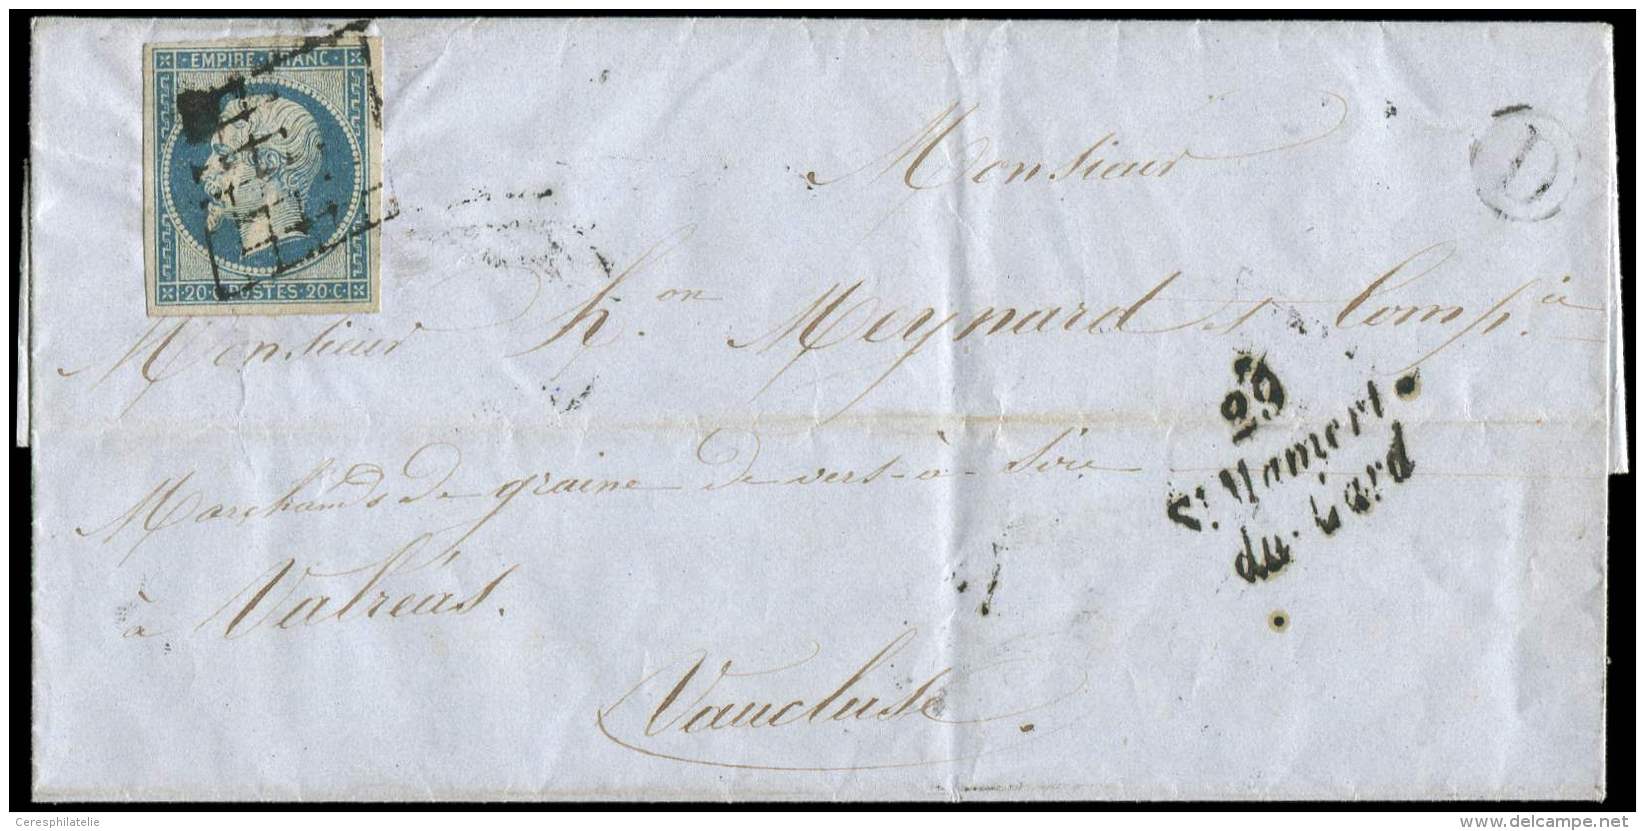 EMPIRE FRANC
20·C·POSTES·20·C·
D
Monsieur
Monsieur h.on Meynard & Comp.ie
29
St Mamert
du-Gard
Marchands de graine de vers-à-soie
à Valréas.
Vaucluse.
Ceresphilatelie
www.delcampe.net